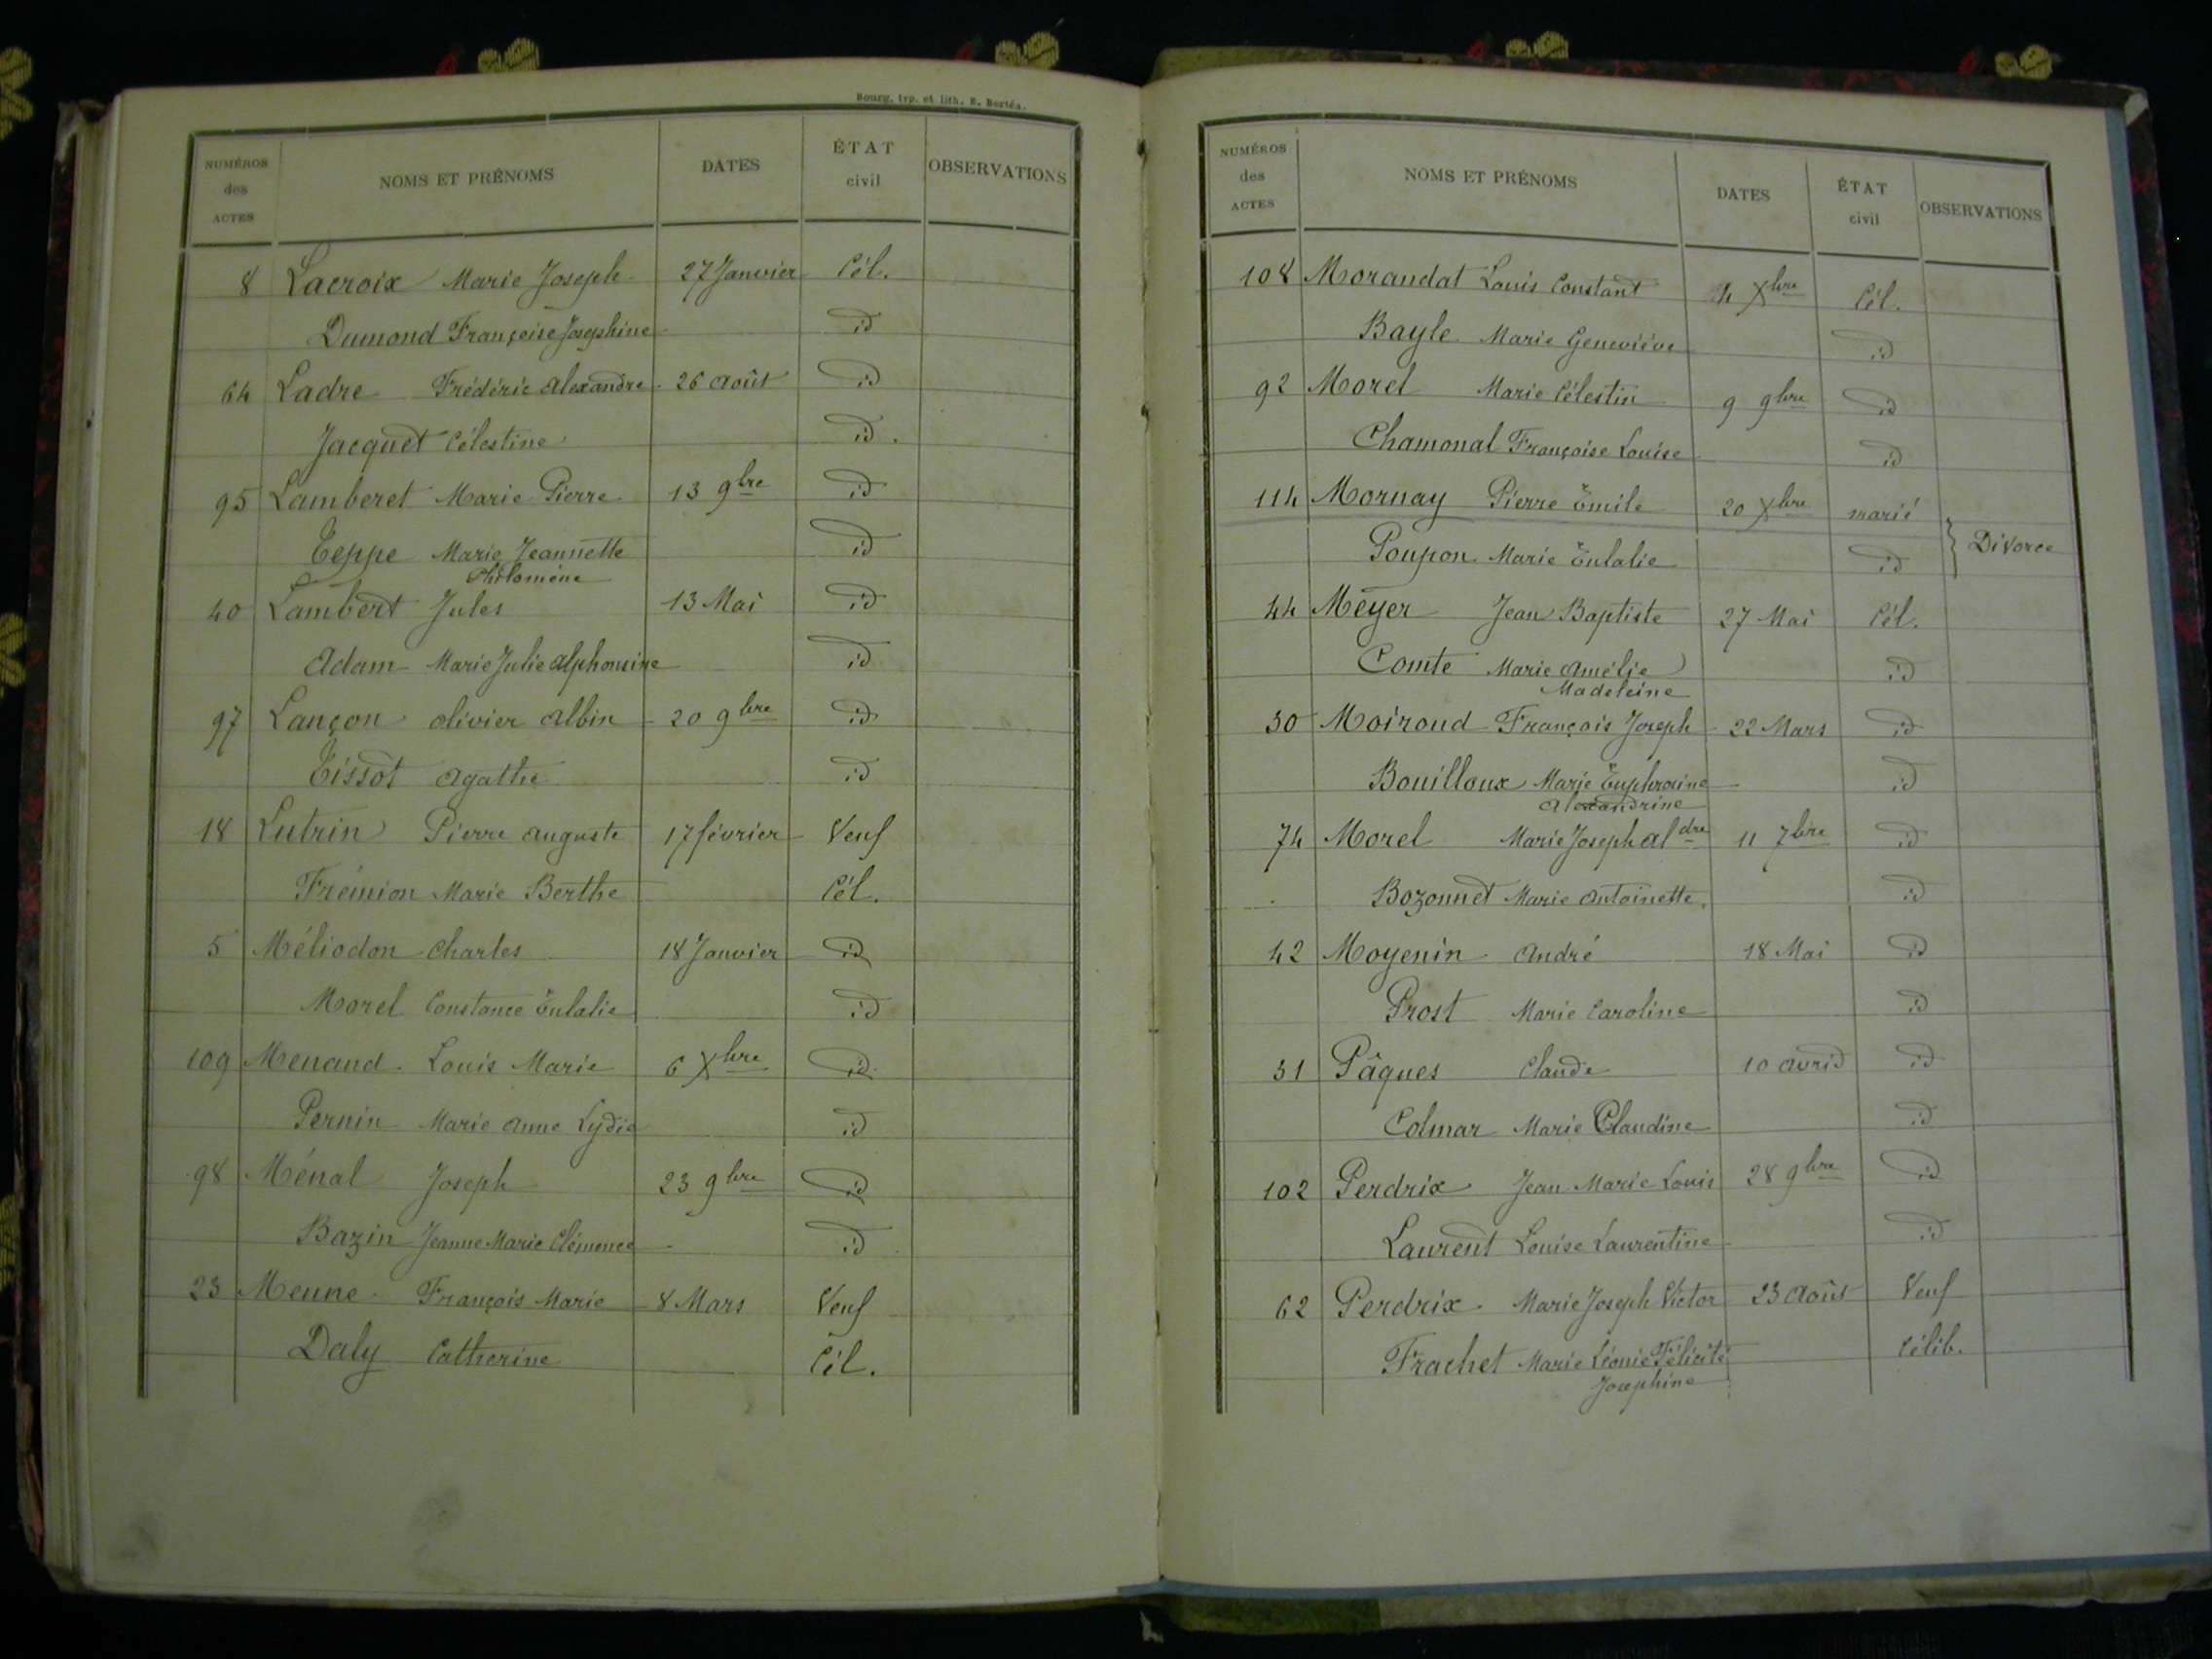 Bourg, typ. et lith. E. Bertéa.
NUMÉROS des ACTES NOMS ET PRÉNOMS DATES ÉTAT civil OBSERVATIONS
8 Lacroix Marie Joseph 27 Janvier Cél.
Dumond Françoise Josephine id
64 Ladre Frédéric Alexandre 26 Août id
Jacquet Célestine id.
95 Lamberet Marie Pierre 13 9bre id
Teppe Marie Jeannette id
Philomène
40 Lambert Jules 13 Mai id
Adam Marie Julie Alphonsine id
97 Lançon Olivier Albin 20 9bre id
Tissot Agathe id
18 Lutrin Pierre Auguste 17 février Veuf
Frémion Marie Berthe Cél.
5 Méliodon Charles 18 Janvier id
Morel Constance Eulalie id
109 Menand Louis Marie 6 Xbre id
Pernin Marie Anne Lydie id
98 Ménal Joseph 23 9bre id
Bazin Jeanne Marie Clémence id
23 Meune François Marie 8 Mars Veuf
Daly Catherine Cél.
NUMÉROS des ACTES NOMS ET PRÉNOMS DATES ÉTAT civil OBSERVATIONS
108 Morandat Louis Constant 4 Xbre Cél.
Bayle Marie Geneviève id
92 Morel Marie Célestin 9 9bre id
Chamonal Françoise Louise id
114 Mornay Pierre Emile 20 Xbre marié
Poupon Marie Eulalie id } Divorce
44 Meyer Jean Baptiste 27 Mai Cél.
Comte Marie Amélie id
Madeleine
30 Moiroud François Joseph 22 Mars id
Bouilloux Marie Euphrosine id
Alexandrine
74 Morel Marie Joseph Aldre 11 7bre id
Bozonnet Marie Antoinette. id
42 Moyenin André 18 Mai id
Prost Marie Caroline id
31 Pâques Claude 10 Avril id
Colmar Marie Claudine id
102 Perdrix Jean Marie Louis 28 9bre id
Laurent Louise Laurentine id
62 Perdrix Marie Joseph Victor 23 Août Veuf
Frachet Marie Léonie Félicité Célib.
Josephine